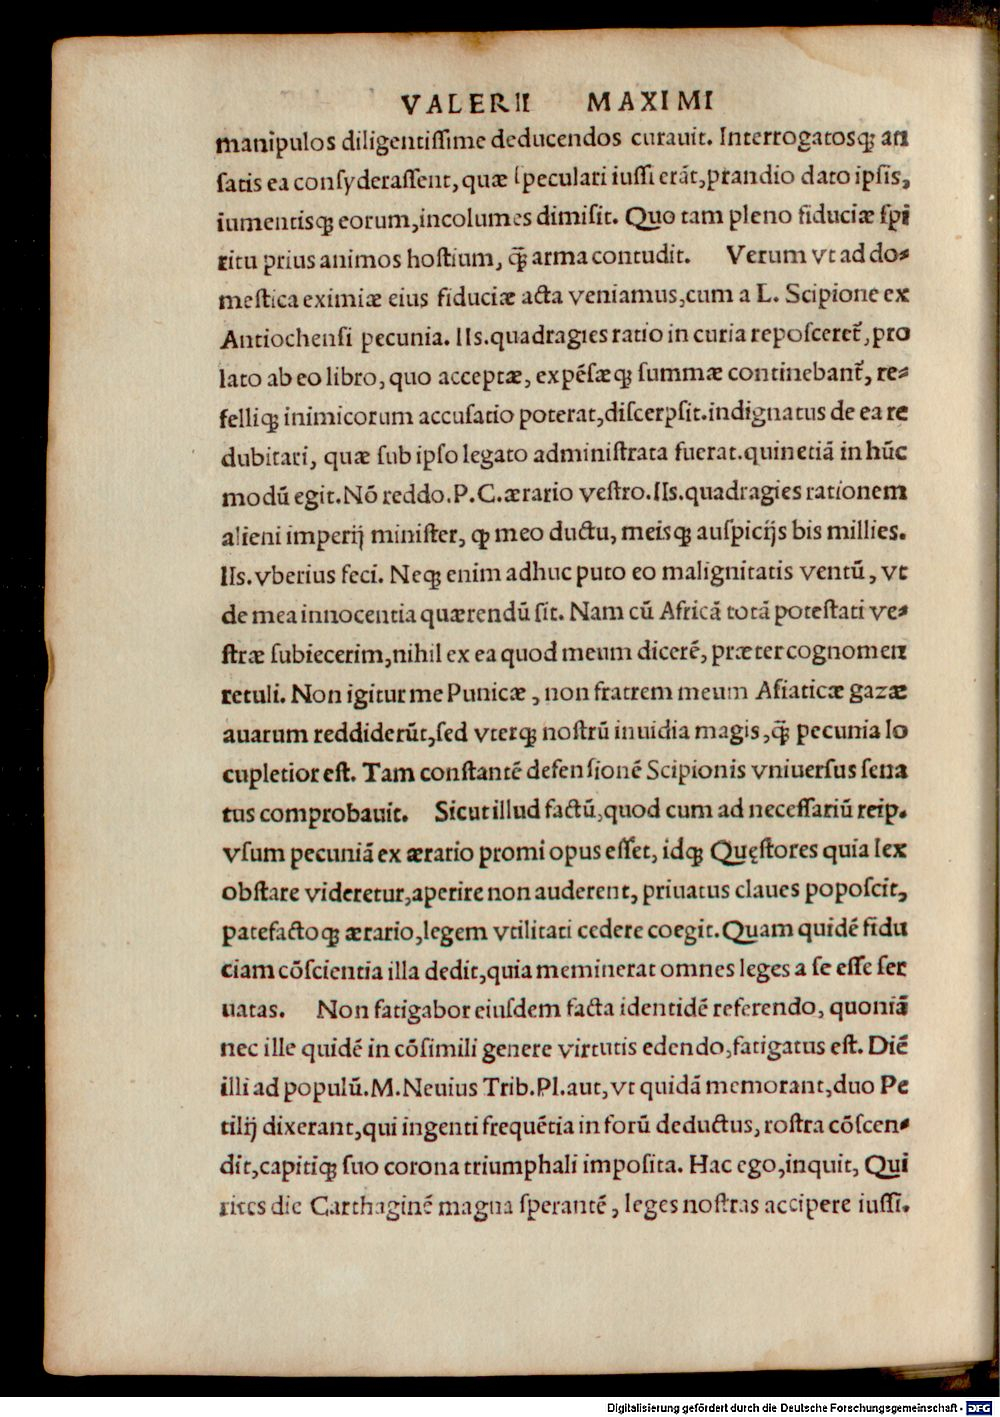 VALERII MAXIMI
manipulos diligentiſſime deducendos curauit. Interrogatosqꝫ an
ſatis ea conſyderaſſent, quæ ſpeculari iuſſi erāt, prandio dato ipſis,
iumentisqꝫ eorum, incolumes dimiſit. Quo tam pleno fiduciæ ſpi
ritu prius animos hoſtium, q̃ arma contudit. Verum vt ad do-
meſtica eximiæ eius fiduciæ acta veniamus, cum a L. Scipione ex
Antiochenſi pecunia. IIs. quadragies ratio in curia repoſceret̃, pro
lato ab eo libro, quo acceptæ, expēſæqꝫ ſummæ continebant̃, re-
felliqꝫ inimicorum accuſatio poterat, diſcerpſit. indignatus de ea re
dubitari, quæ ſub ipſo legato adminiſtrata fuerat. quinetiā in hūc
modū egit. Nō reddo. P. C. ærario veſtro. IIs. quadragies rationem
alieni imperij miniſter, ꝙ meo ductu, meisqꝫ auſpicijs bis millies.
IIs. vberius feci. Neqꝫ enim adhuc puto eo malignitatis ventū, vt
de mea innocentia quærendū ſit. Nam cū Africā totā poteſtati ve-
ſtræ ſubiecerim, nihil ex ea quod meum dicerē, præter cognomen
retuli. Non igitur me Punicæ, non fratrem meum Aſiaticæ gazæ
auarum reddiderūt, ſed vterqꝫ noſtrū inuidia magis, q̃ pecunia lo
cupletior eſt. Tam conſtantē defenſionē Scipionis vniuerſus ſena
tus comprobauit. Sicut illud factū, quod cum ad neceſſariū reip.
vſum pecuniā ex ærario promi opus eſſet, idqꝫ Quęſtores quia lex
obſtare videretur, aperire non auderent, priuatus claues popoſcit,
patefactoqꝫ ærario, legem vtilitati cedere coegit. Quam quidē fidu
ciam cōſcientia illa dedit, quia meminerat omnes leges a ſe eſſe ſer
uatas. Non fatigabor eiuſdem facta identidē referendo, quoniā
nec ille quidē in cōſimili genere virtutis edendo, fatigatus eſt. Diē
illi ad populū. M. Neuius Trib. Pl. aut, vt quidā memorant, duo Pe
tilij dixerant, qui ingenti frequētia in forū deductus, roſtra cōſcen-
dit, capitiqꝫ ſuo corona triumphali impoſita. Hac ego, inquit, Qui
rites die Carthaginē magna ſperantē, leges noſtras accipere iuſſi.
Digitalisierung gefördert durch die Deutsche Forschungsgemeinschaft - DFG